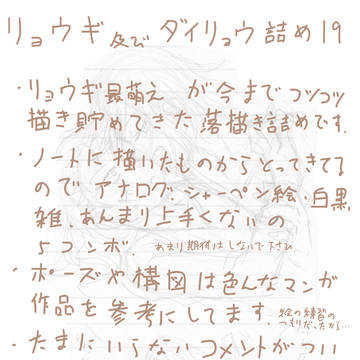 リョウギ及びダイリョウ詰め19
・リョウギ最萌え が今までコツコツ
描き貯めてきた落描き詰めです。
・ノートに描いたものからとってきてる
ので アナログ、シャーペン絵、白黒、
雑、あんまり上手くないの
5コンボ。 あまり期待はしないで下さい。
・ポーズや構図は色んなマンガ
作品を参考にしてます。 絵の練習の
つもりだったから…
・たまにいらないコメントがつい